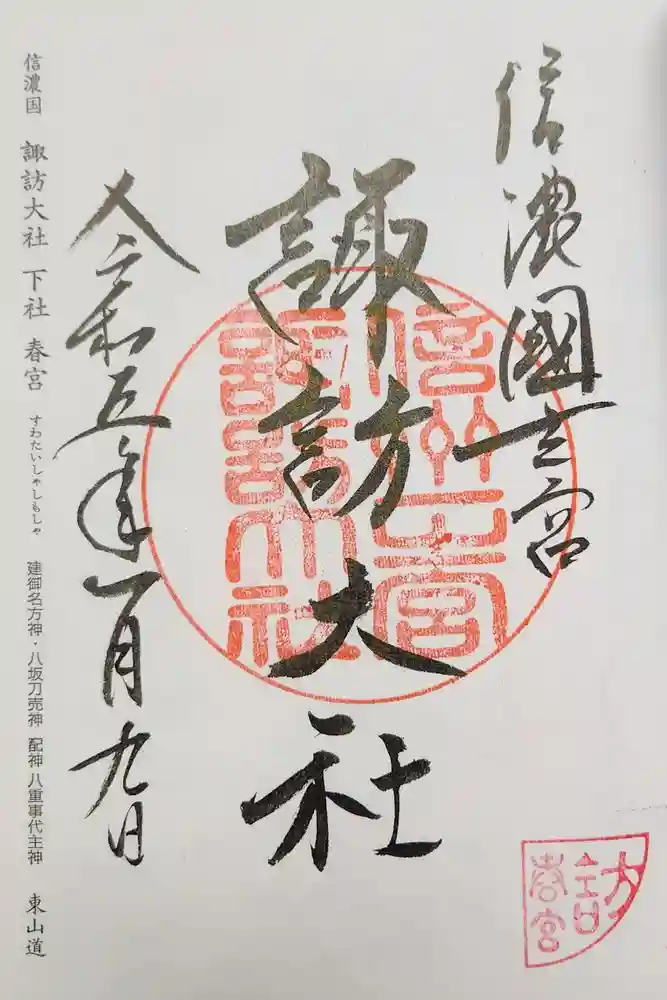 信濃國一之宮
諏訪大社
信州一宮
諏訪大社
令和五年一月九日
信濃国 諏訪大社 下社 春宮 すわたいしゃしもしゃ 建御名方神・八坂刀売神 配神 八重事代主神 東山道
訪
春宮